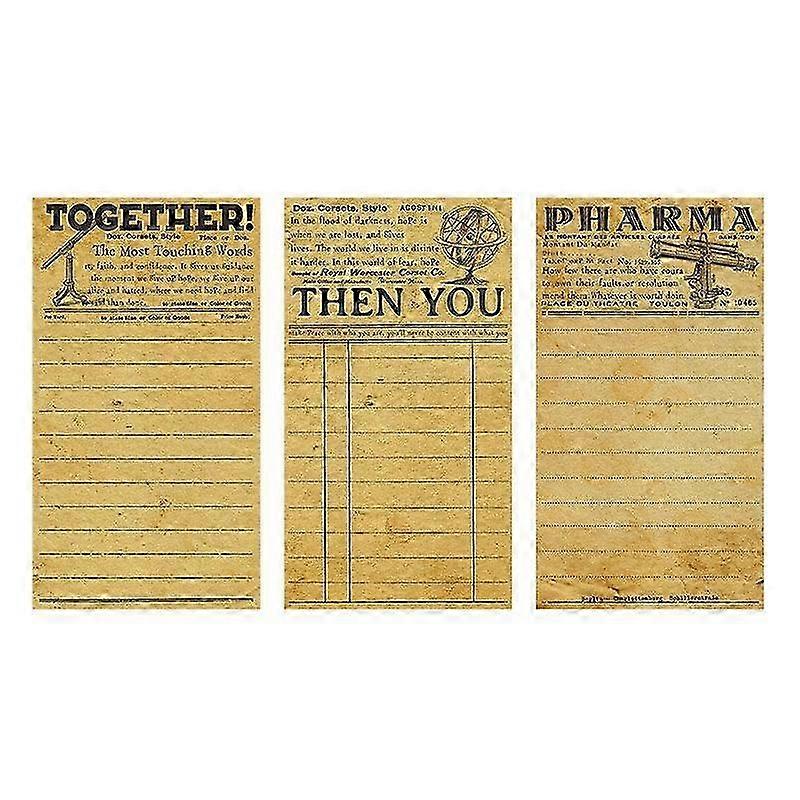 TOGETHER!
Doz. Corsets, Style Place or Don.
The Most Touching Words
ry, faith, and confidence. It gives us guidance
the moment we give up hope, is we give up our
alice and hatred, where we need hope and find
than done. to state Size or Color of Goods
to state Size or Color of Goods Price Each
Doz. Corsets, Style AGOSTINI
In the flood of darkness, hope is
when we are lost, and gives
lives. The world we live in is disinte
it harder. In this world of fear, hope
Bought of Royal Worcester Corset Co.
THEN YOU
Make Peace with who you are, you'll never be content with what you
PHARMA
LE MONTANT DES ARTICLES
Montant Du Mandat
How few there are who have coura
to own their faults, or resolution
mend them. Whatever is worth doin
PLACE DU THEATRE TOULON Nº 10465
Berlin - Charlottenburg Schillerstraße